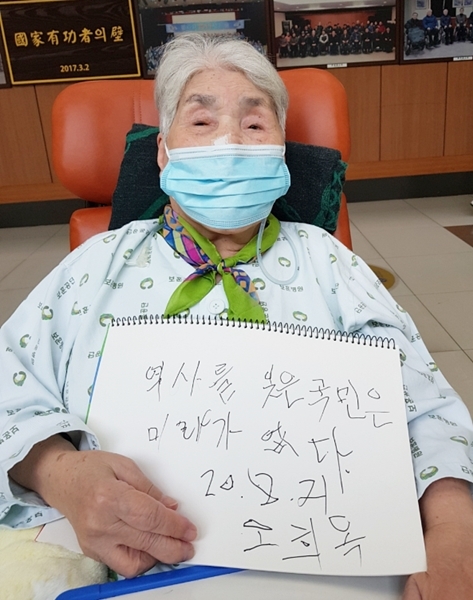 國家有功者의壁
2017.3.2
역사를 잊은국민은
미래가 없다.
20.8.21
오희옥
보훈병원